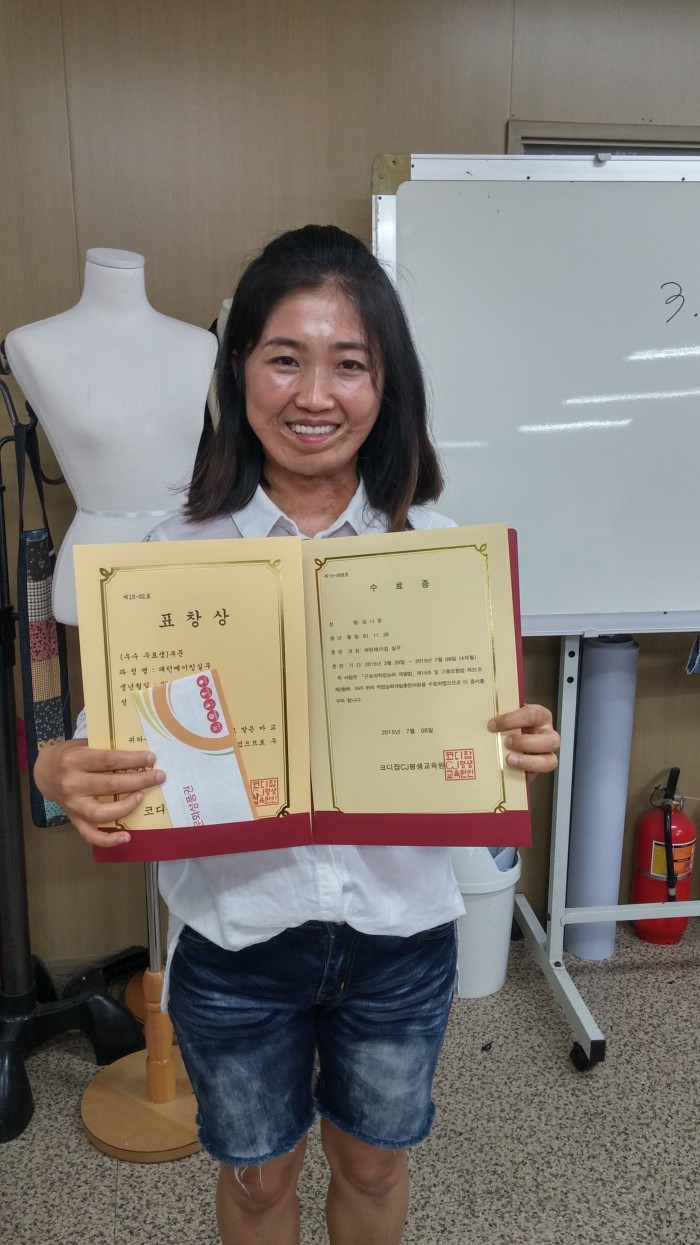 3.
제15-02호
표 창 상
(우수 수료생)부문
과 정 명 : 패턴메이킹실무
생년월일 :
성
위하
코디
문화상품권
수 료 증
성 명:김 나 은
생 년 월 일: 81. 11. 26
훈 련 과 정: 패턴메이킹 실무
훈 련 기 간: 2015년 3월 26일 ~ 2015년 7월 08일 (4개월)
위 사람은 「근로자직업능력 개발법」 제15조 및 고용보험법 제31조
제2항에 따라 위의 직업능력개발훈련과정을 수료하였으므로 이 증서를
수여 합니다.
2015년 7월 08일
코디잡CJ평생교육원
코디잡
CJ평생
교육원인